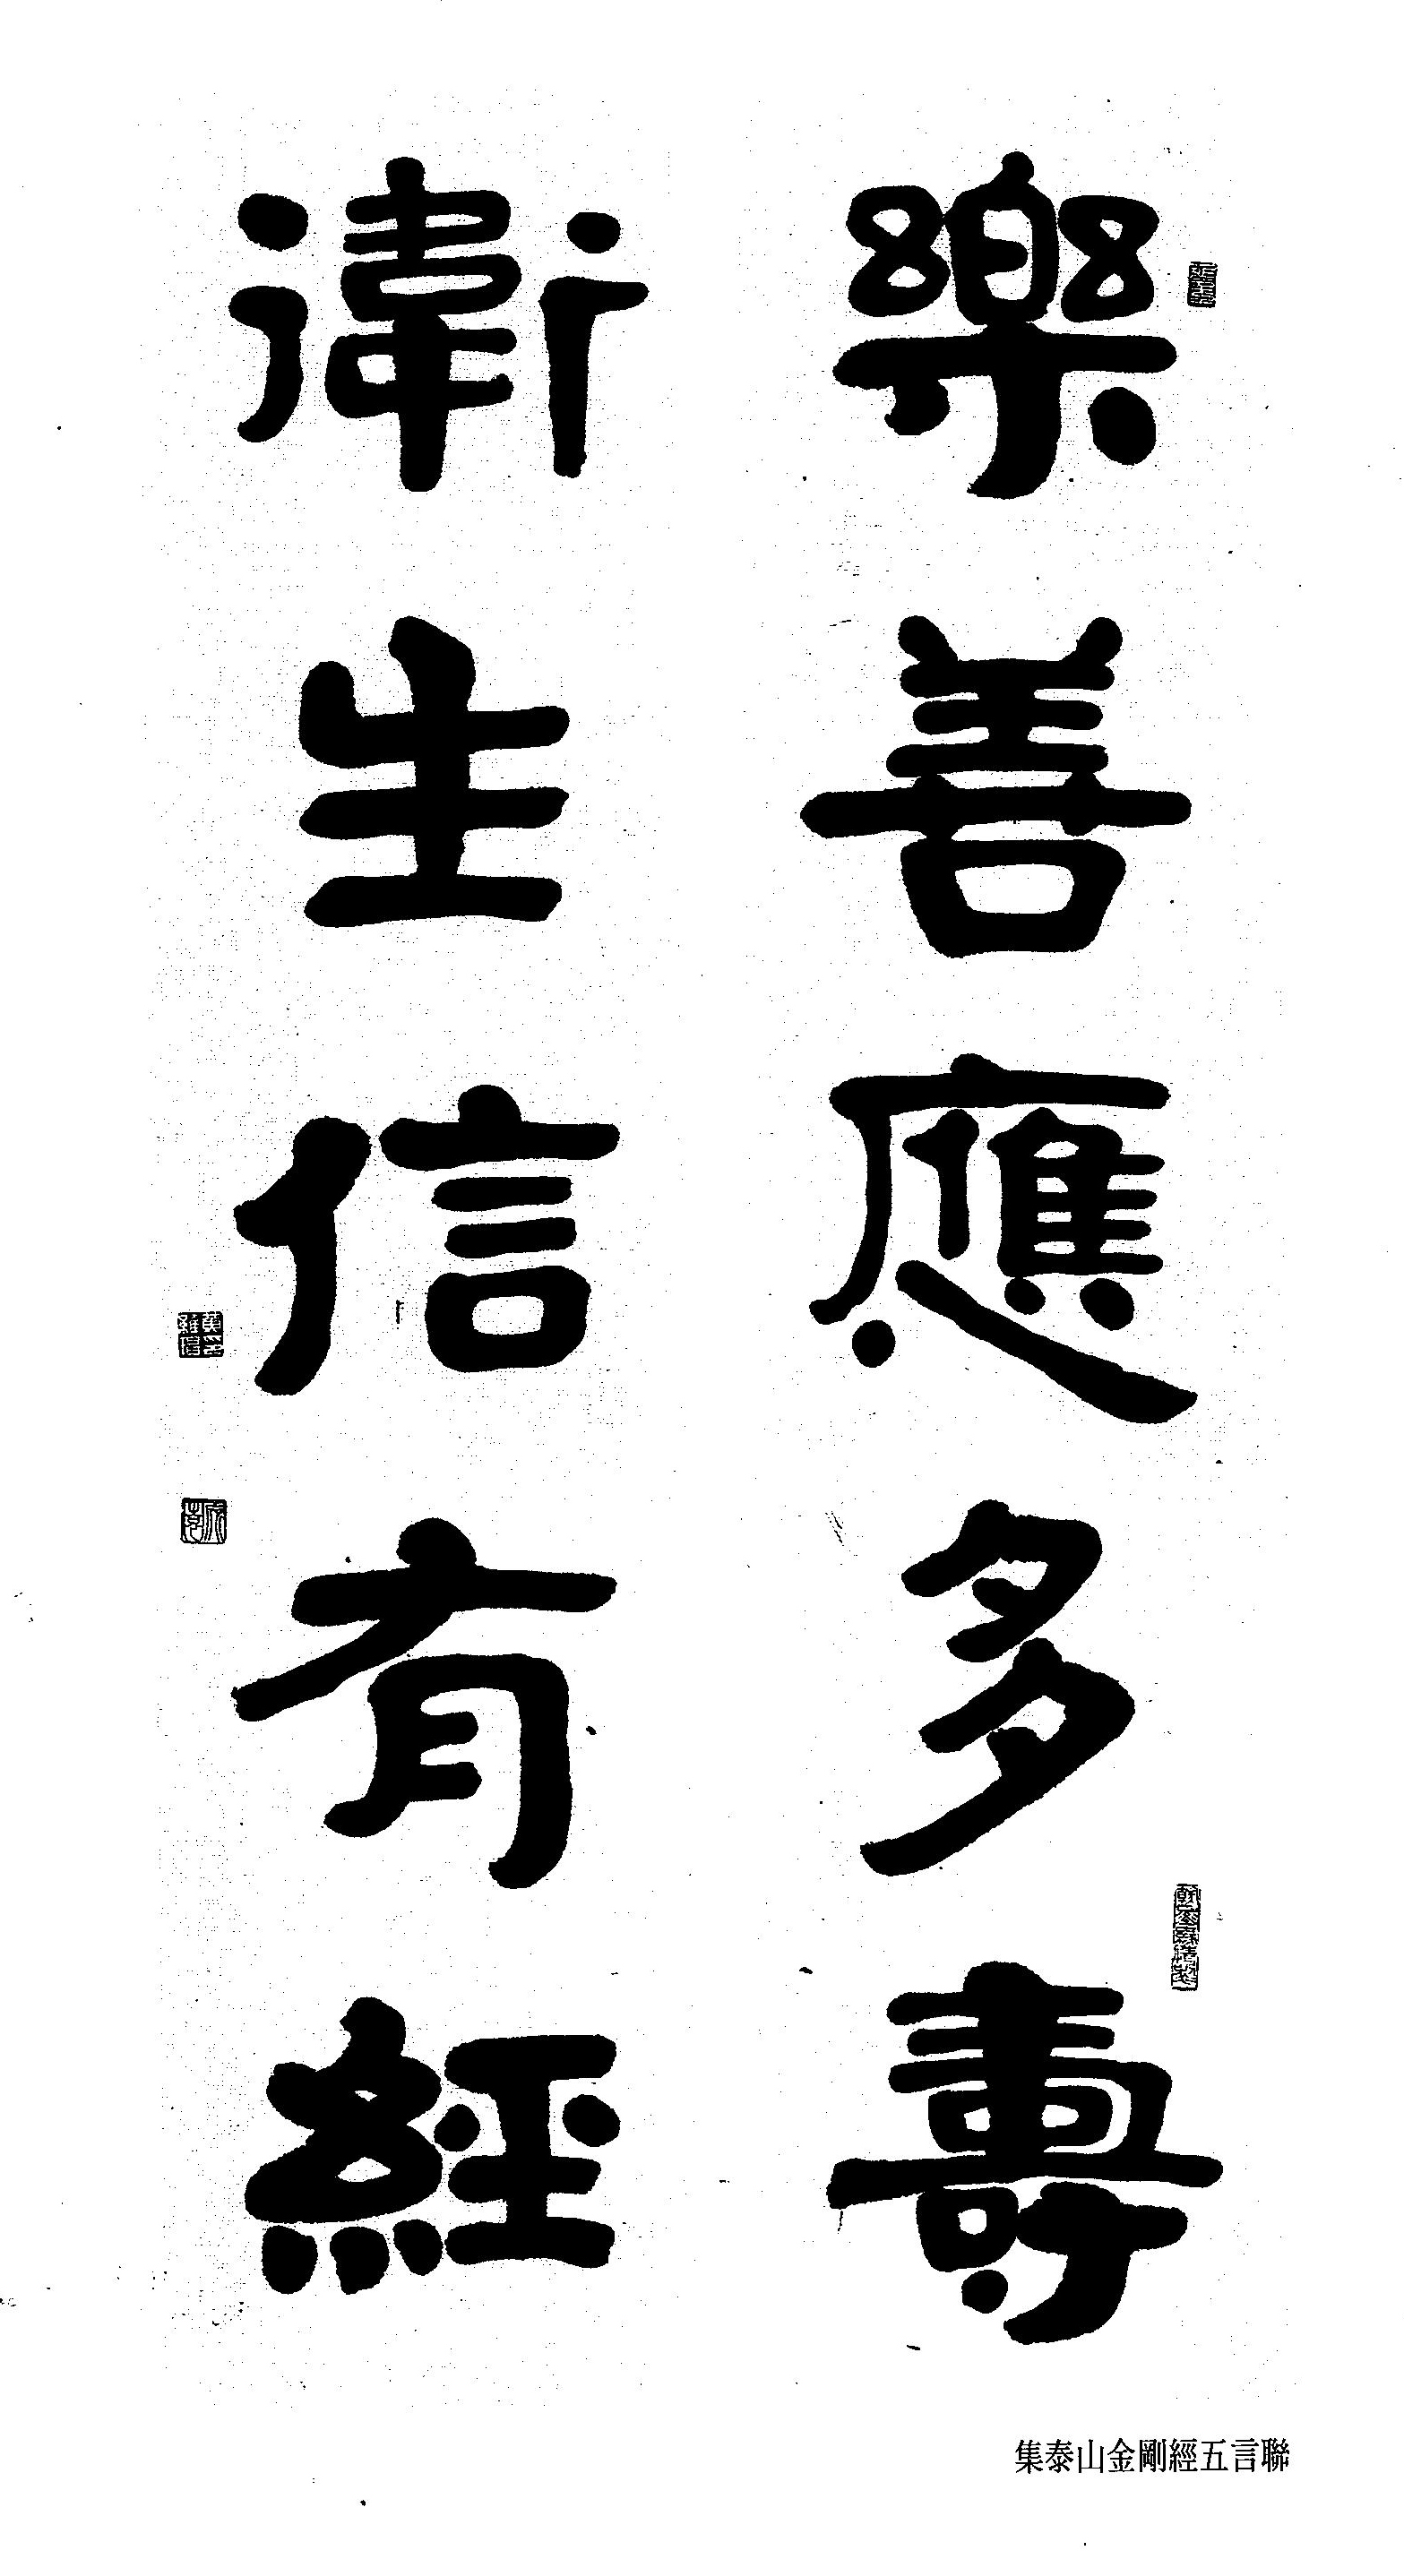 樂善應多壽
衛生信有經
集泰山金剛經五言聯